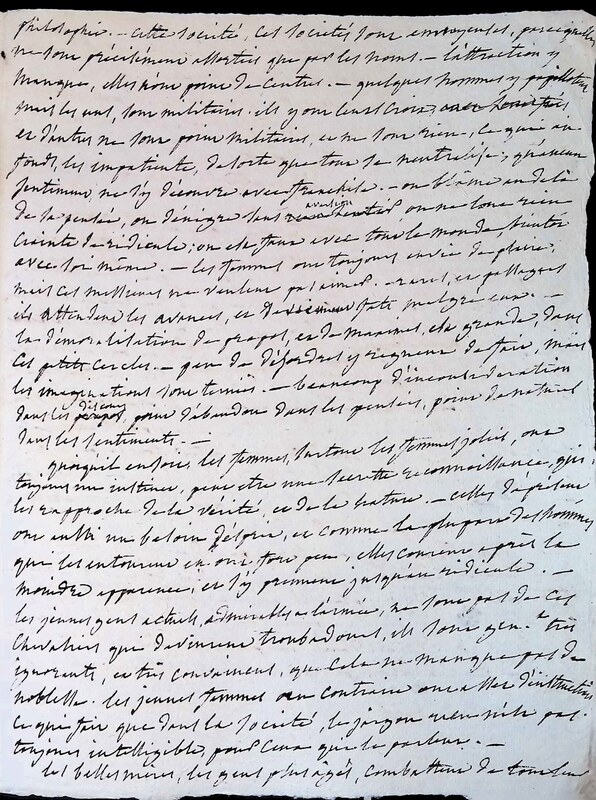 philosophie. — cette société, ces sociétés sont ennuyeuses, parcequelles
ne sont précisément assorties que par les noms. — l'attraction y
manque, elles n'ont point de centres. — quelques hommes y papillotent
mais les uns, sont militaires. ils y ont leurs croix,
et d'autres ne sont point militaires, et ne sont rien, ce que au
fond, les impatiente, de sorte que tout se neutralise; qu'aucun
sentiment, ne s'y découvre avec franchise. — on blâme au delà
de sa pensée, on dénigre sans aversion on ne loue rien
crainte de ridicule; on est faux avec tout le monde bientôt
avec soi même. — les femmes ont toujours envie de plaire,
mais ces messieurs ne veulent pas aimer. — rares, et passagers
ils attendent les avances, et deviennent fats malgré eux. —
la démoralisation de propos, et de maximes, est grande, dans
ces petits cercles. — peu de désordres y règnent de fait, mais
les imaginations sont ternies. — beaucoup d'inconsidération
dans les discours, point d'abandon dans les pensées, point de naturel
dans les sentiments. —
quoiqu'il en soit, les femmes, surtout les femmes jolies, ont
toujours un instinct, peut etre une secrette reconnaissance, qui
les rapproche de la vérité, et de la nature. — celles de
ont aussi un besoin d'esprit, et comme la plupart des hommes
qui les entourent en ont fort peu, elles courent après la
moindre apparence, et s'y prennent jusqu'au ridicule. —
les jeunes gens actuels, admirables a l'armée, ne sont pas de ces
chevaliers qui devinrent troubadours, ils sont gen.t très
ignorants, et très convaincus, que cela ne manque pas de
noblesse. les jeunes femmes au contraire ont assez d'instruction
ce qui fait que dans la société, le jargon n'est pas
toujours intelligible, pour ceux que le parlent. —
les belles mères, les gens plus agés, combattent de tout leur